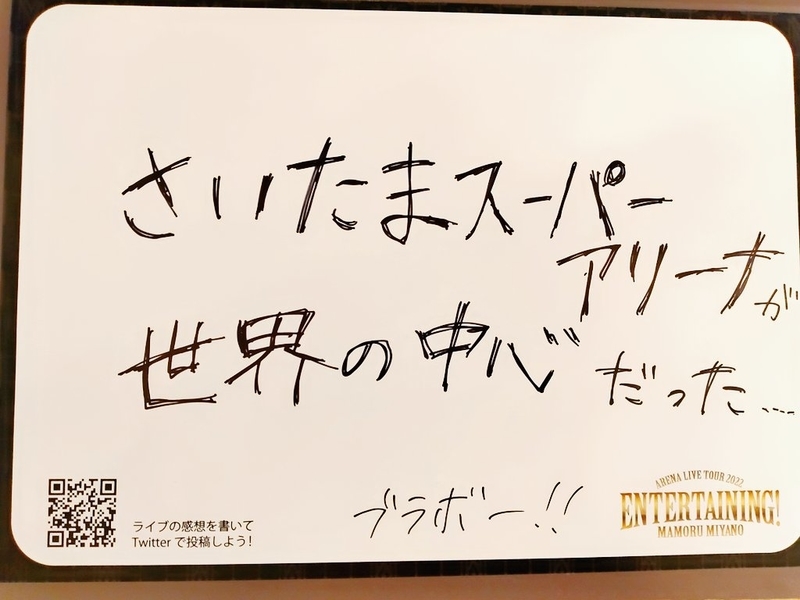 さいたまスーパー
アリーナが
世界の中心だった…
ブラボー!!
ライブの感想を書いて
Twitterで投稿しよう!
ARENA LIVE TOUR 2022
ENTERTAINING!
MAMORU MIYANO